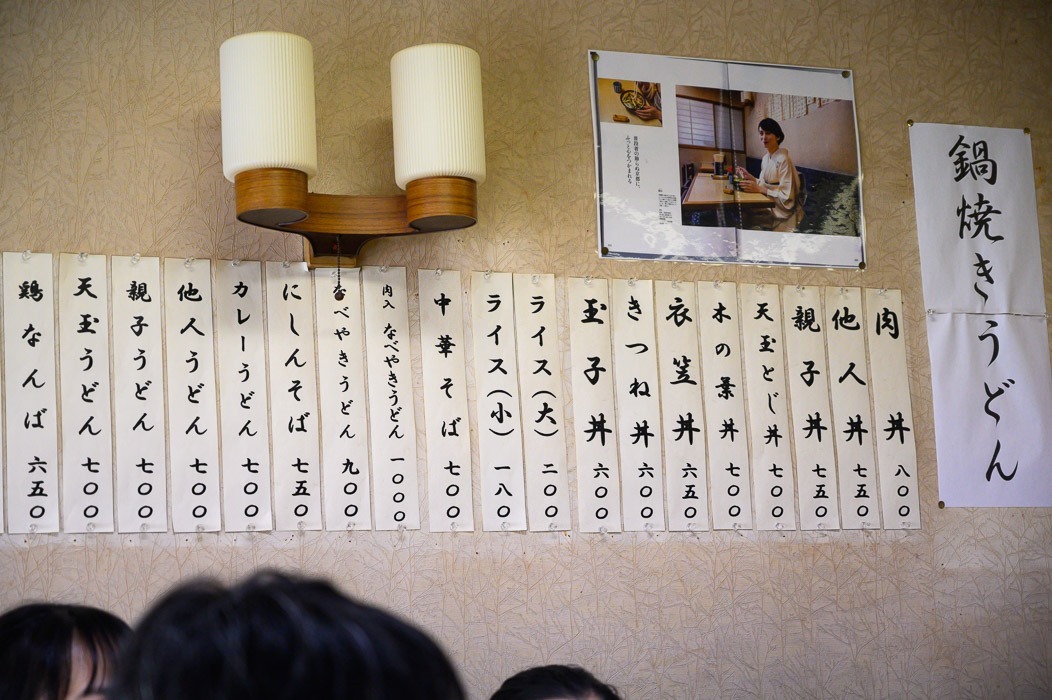 鍋焼きうどん
肉丼 八〇〇
他人丼 七五〇
親子丼 七五〇
天玉とじ丼 七〇〇
木の葉丼 七〇〇
衣笠丼 六五〇
きつね丼 六〇〇
玉子丼 六〇〇
ライス(大) 二〇〇
ライス(小) 一八〇
中華そば 七〇〇
肉入 なべやきうどん 一〇〇〇
なべやきうどん 九〇〇
にしんそば 七五〇
カレーうどん 七〇〇
他人うどん 七〇〇
親子うどん 七〇〇
天玉うどん 七〇〇
鶏なんば 六五〇
普段着の飾らぬ京都に、
ふっと心をつかまれる